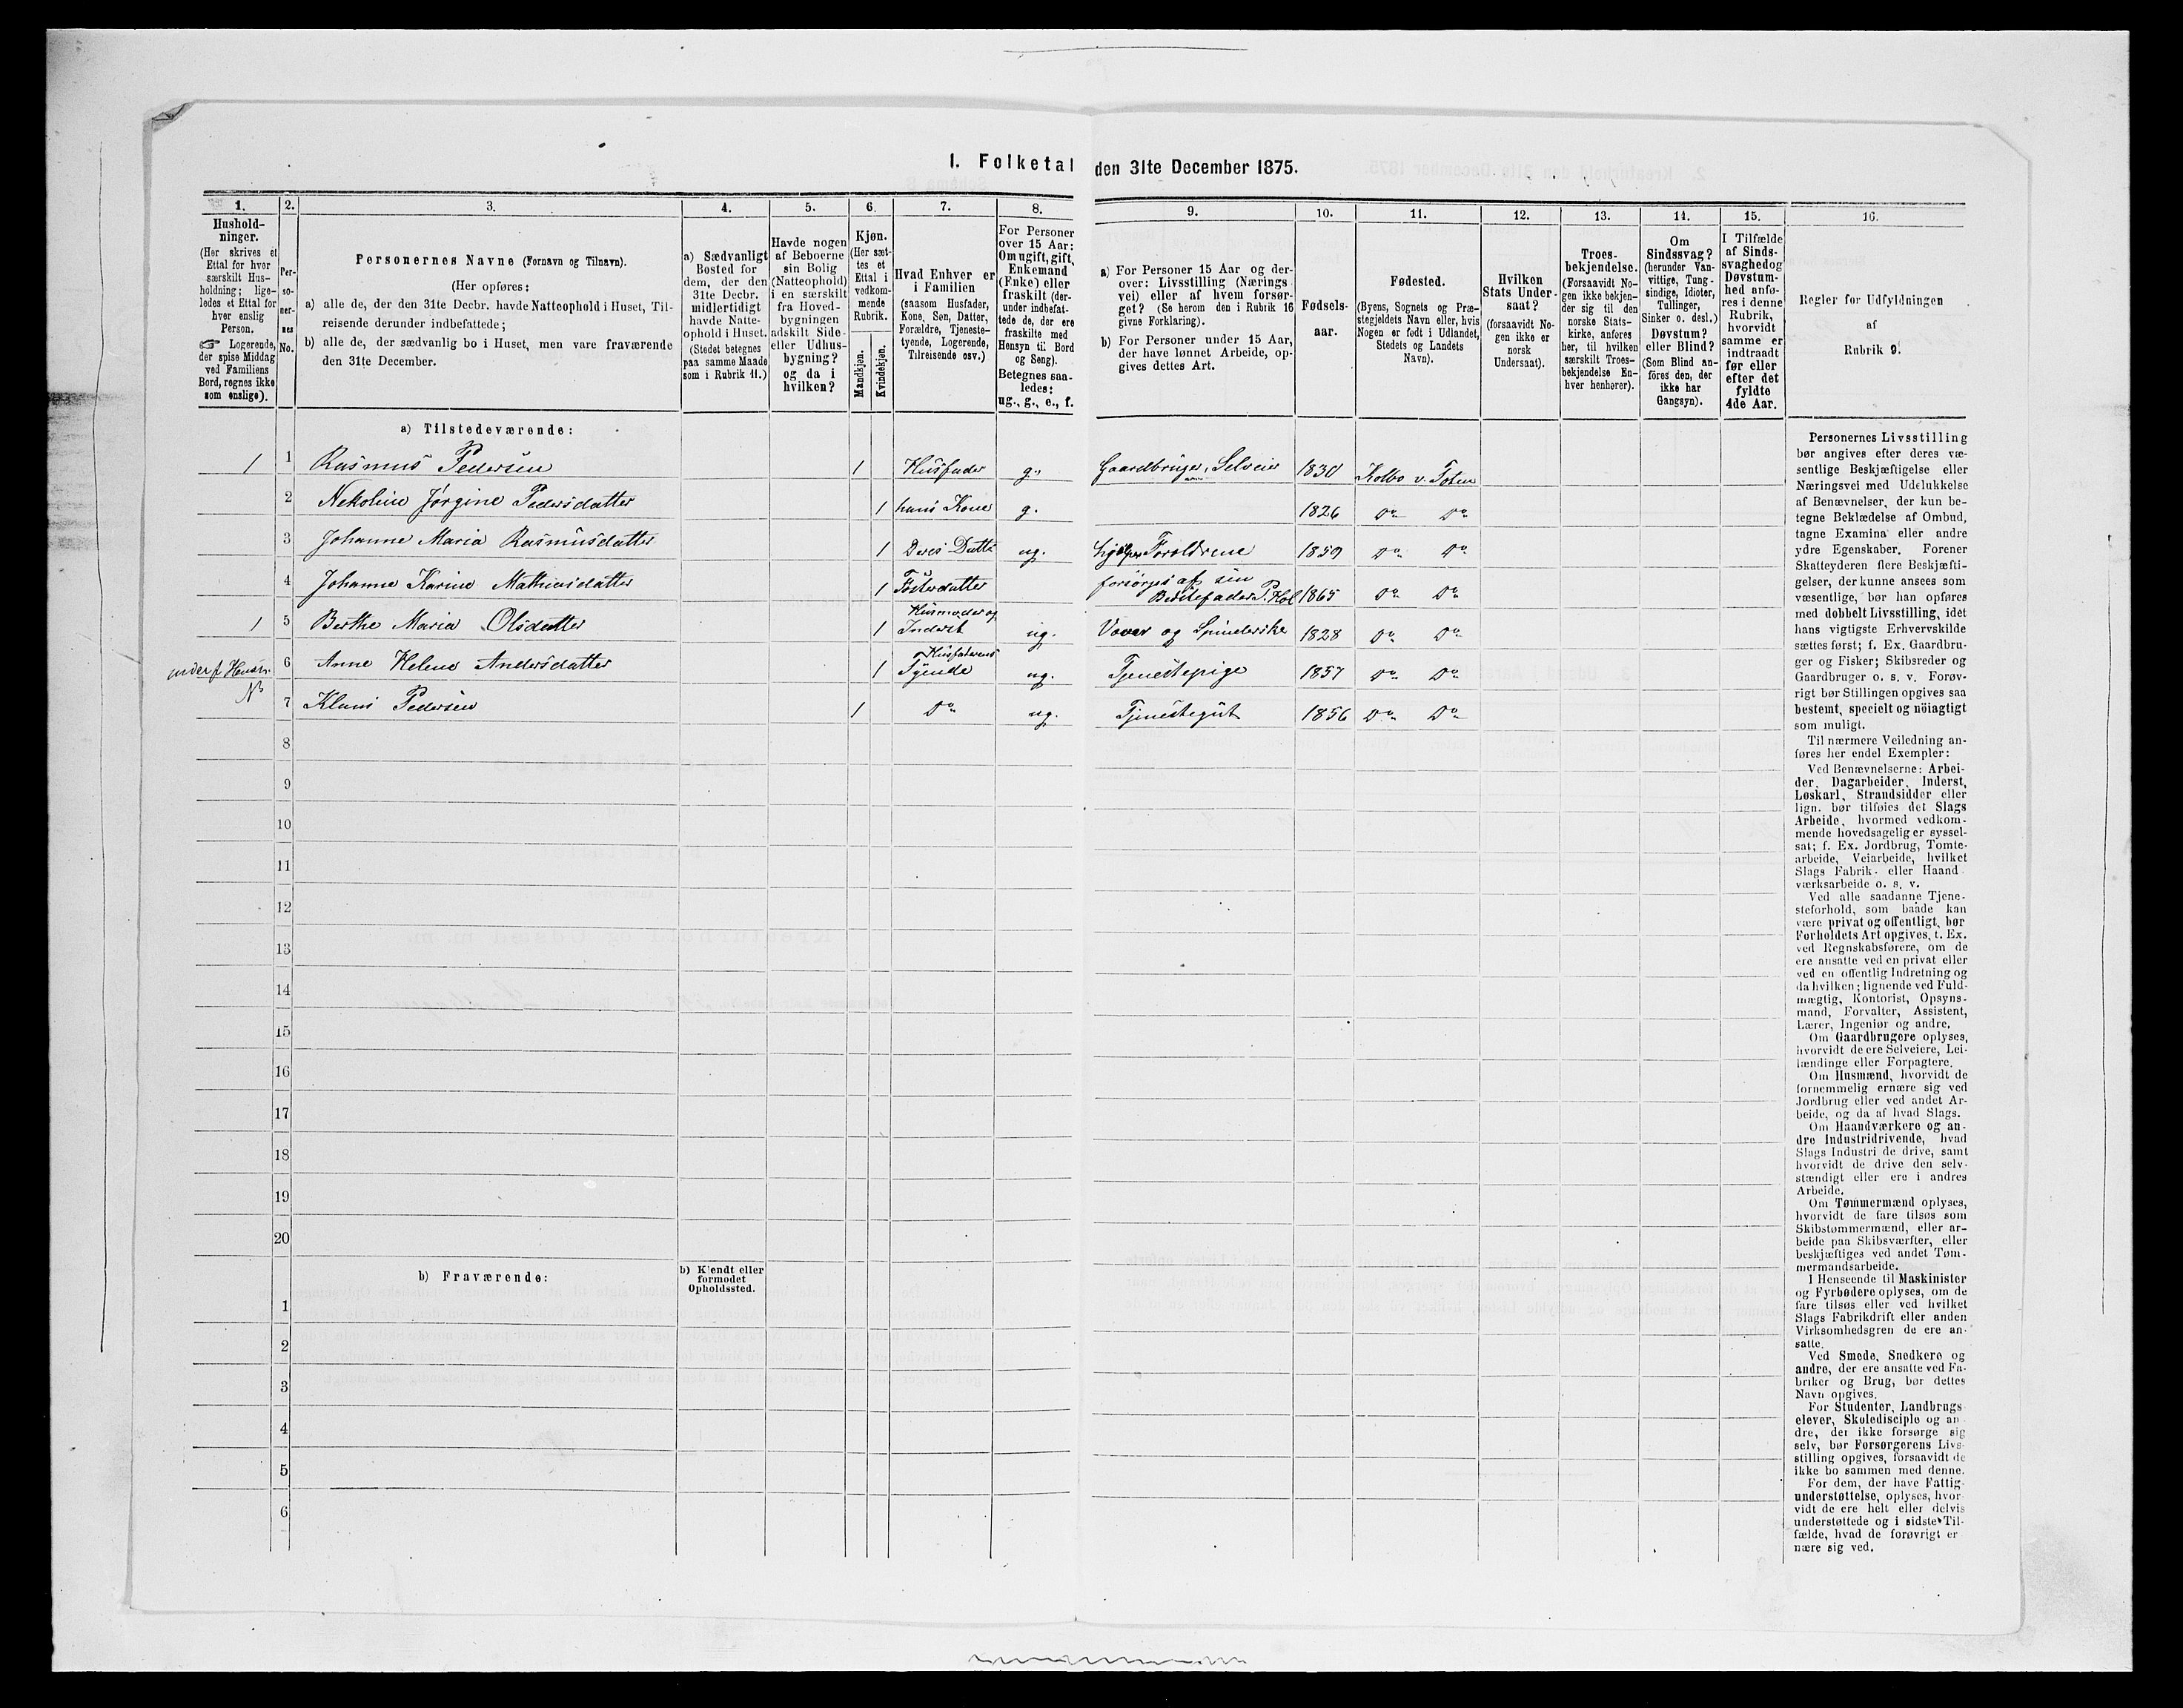 I. Folketal den 31te December 1875.
1.
Hushold-
ninger.
(Her skrives et
Ettal for hver
særskilt Hus-
holdning; lige-
ledes et Ettal for
hver enslig
Person.
☞ Logerende,
der spise Middag
ved Familiens
Bord, regnes ikke
som enslige).
2.
Per-
so-
ner-
nes
No.
3.
Personernes Navne (Fornavn og Tilnavn).
(Her opføres:
a) alle de, der den 31te Decbr. havde Natteophold i Huset, Til-
reisende derunder indbefattede;
b) alle de, der sædvanlig bo i Huset, men vare fraværende
den 31te December.
4.
a) Sædvanligt
Bosted for
dem, der den
31te Decbr.
midlertidigt
havde Natte-
ophold i Huset.
(Stedet betegnes
paa samme Maade
som i Rubrik 11.)
5.
Havde nogen
af Beboerne
sin Bolig
(Natteophold)
i en særskilt
fra Hoved-
bygningen
adskilt Side-
eller Udhus-
bygning?
og da i
hvilken?
6.
Kjøn.
(Her sæt-
tes et
Ettal i
vedkom-
mende
Rubrik.
Mandkjøn.
Kvindekjøn.
7.
Hvad Enhver er
i Familien
(saasom Husfader,
Kone, Søn, Datter,
Forældre, Tjeneste-
tyende, Logerende,
Tilreisende osv.)
8.
For Personer
over 15 Aar:
Om ugift, gift,
Enkemand
(Enke) eller
fraskilt (der-
under indbefat-
tede de, der ere
fraskilte med
Hensyn til Bord
og Seng).
Betegnes saa-
ledes:
ug., g., e., f.
9.
a) For Personer 15 Aar og der-
over: Livsstilling (Nærings
vei) eller af hvem forsør-
get? (Se herom den i Rubrik 16
givne Forklaring).
b) For Personer under 15 Aar,
der have lønnet Arbeide, op-
gives dettes Art.
10.
Fødsels-
aar.
11.
Fødested.
(Byens, Sognets og Præ-
stegjeldets Navn eller, hvis
Nogen er født i Udlandet,
Stedets og Landets
Navn).
12.
Hvilken
Stats Under-
saat?
(forsaavidt No-
gen ikke er
norsk
Undersaat).
13.
Troes-
bekjendelse.
(Forsaavidt No-
gen ikke bekjen-
der sig til den
norske Stats-
kirke, anføres
her, til hvilken
særskilt Troes-
bekjendelse En-
hver henhører).
14.
Om
Sindssvag?
(herunder Van-
vittige, Tung-
sindige, Idioter,
Tullinger,
Sinker o. desl.)
Døvstum?
eller Blind?
(Som Blind an-
føres den, der
ikke har
Gangsyn).
15.
I Tilfælde
af Sinds-
svaghed og
Døvstum-
hed anfø-
res i denne
Rubrik,
hvorvidt
samme er
indtraadt
før eller
efter det
fyldte
4de Aar.
16.
Regler for Udfyldningen
af
Rubrik 9.
a) Tilstedeværende:
1 1 Rasmus Pedersen 1 Husfader g. Gaardbruger, Selveier 1830 Kolbo v. Toten
2 Nekoline Jørgine Pedersdatter 1 hans Kone g. 1826 Do Do
3 Johanne Maria Rasmusdatter 1 Deres Datter ug. hjælper Forældrene 1859 Do Do
4 Johanne Karine Mathiasdatter 1 Fosterdatter forsørges af sin
Bestefader P. Kol 1865 Do Do
1 5 Berthe Maria Olsdatter 1 Husmoder og
Inderst ug. Væver og Spinderske 1828 Do Do
6 Anne Helene Andersdatter 1 Husfaderens
Tyende ug. Tjenestepige 1857 Do Do
7 Klaus Pedersen 1 Do ug. Tjenestegut 1856 Do Do
8
9
10
11
12
13
14
15
16
17
18
19
20
b) Fraværende:
b) Kjendt eller
formodet
Opholdssted.
1
2
3
4
5
6
Personernes Livsstilling
bør angives efter deres væ-
sentlige Beskjæftigelse eller
Næringsvei med Udelukkelse
af Benævnelser, der kun be-
tegne Beklædelse af Ombud,
tagne Examina eller andre
ydre Egenskaber. Forener
Skatteyderen flere Beskjæfti-
gelser, der kunne ansees som
væsentlige, bør han opføres
med dobbelt Livsstilling, idet
hans vigtigste Erhvervskilde
sættes først; f. Ex. Gaardbru-
ger og Fisker; Skibsreder og
Gaardbruger o. s. v. Forøv-
rigt bør Stillingen opgives saa
bestemt, specielt og nöiagtigt
som muligt.
Til nærmere Veiledning an-
føres her endel Exempler:
Ved Benævnelserne: Arbei-
der, Dagarbeider, Inderst,
Løskarl, Strandsidder eller
lign. bør tilføies det Slags
Arbeide, hvormed vedkom-
mende hovedsagelig er syssel-
sat; f. Ex. Jordbrug, Tomte-
arbeide, Veiarbeide, hvilket
Slags Fabrik- eller Haand-
værksarbeide o. s. v.
Ved alle saadanne Tjene-
steforhold, som baade kan
være privat og offentligt, bør
Forholdets Art opgives, t. Ex.
ved Regnskabsførere, om de
ere ansatte ved en privat eller
ved en offentlig Indretning og
da hvilken; lignende ved Fuld-
mægtig, Kontorist, Opsyns-
mand, Forvalter, Assistent,
Lærer, Ingeniør og andre.
Om Gaardbrugere oplyses,
hvorvidt de ere Selveiere, Lei-
lændinge eller Forpagtere.
Om Husmænd, hvorvidt de
fornemmelig ernære sig ved
Jordbrug eller ved andet Ar-
beide, og da af hvad Slags.
Om Haandværkere og an-
dre Industridrivende, hvad
Slags Industri de drive, samt
hvorvidt de drive den selv-
stændigt eller ere i andres
Arbeide.
Om Tømmermænd oplyses,
hvorvidt de fare tilsøs som
Skibstømmermænd, eller ar-
beide paa Skibsværfter, eller
beskjæftiges ved andet Tøm-
mermandsarbeide.
I Henseende til Maskinister
og Fyrbødere oplyses, om de
fare tilsøs eller ved hvilket
Slags Fabrikdrift eller anden
Virksomhedsgren de ere an-
satte.
Ved Smede, Snedkere og
andre, der ere ansatte ved Fa-
briker og Brug, bør dettes
Navn opgives.
For Studenter, Landbrugs-
elever, Skoledisciple og an-
dre, der ikke forsørge sig
selv, bør Forsørgerens Livs-
stilling opgives, forsaavidt de
ikke bo sammen med denne.
For dem, der have Fattig-
understøttelse, oplyses, hvor-
vidt de ere helt eller delvis
understøttede og i sidste Til-
fælde, hvad de forøvrigt er-
nære sig ved.